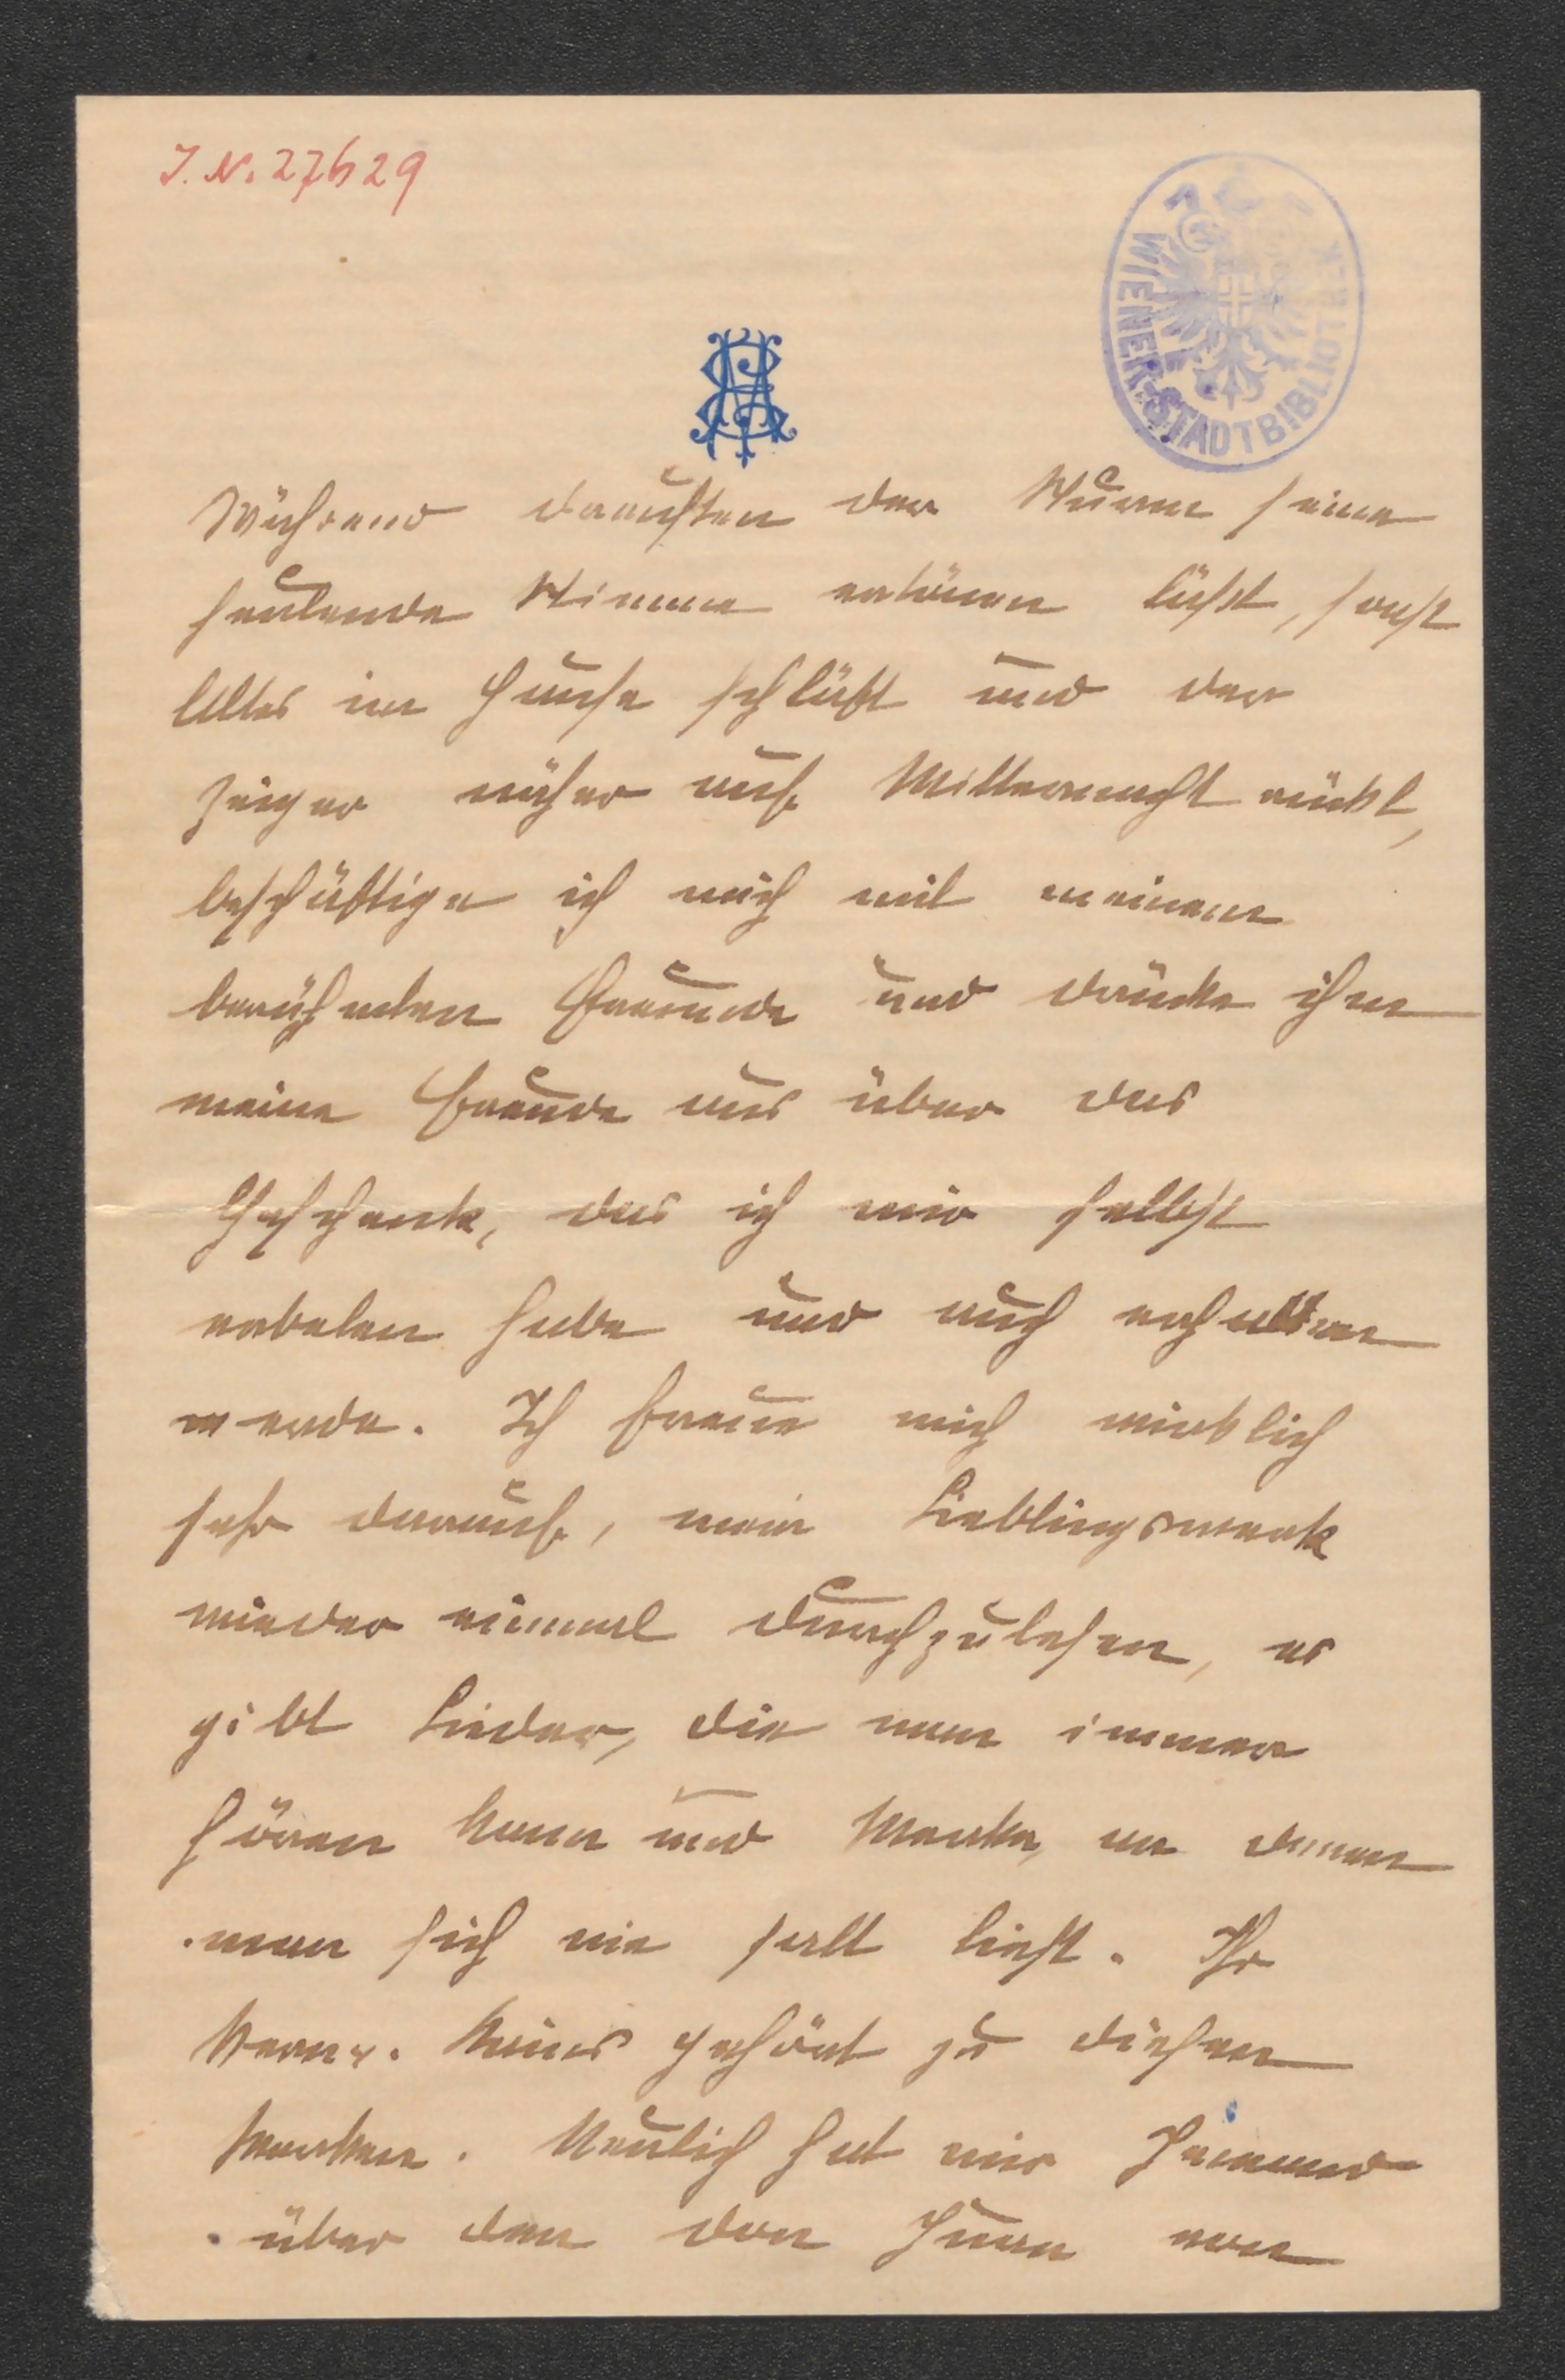 I. N. 27629
WIENER STADTBIBLIOTHEK
Während draußen der Sturm seine
heulende Stimme ertönen läßt, sonst
Alles im Hause schläft und der
Zeiger näher auf Mitternacht rückt,
beschäftige ich mich mit meinem
berühmten Freunde und drücke ihm
meine Freude aus über das
Geschenk, das ich mir selbst
erbeten habe und auch erhalten
werde. Ich freue mich wirklich
sehr darauf, mein Lieblingswerk
wieder einmal durchzulesen, es
gibt Lieder, die man immer
hören kann und Werke, an denen
man sich nie satt liest. Ihr
gehört zu diesen
Werken. Neulich hat mir Jemand
über den Don Juan von